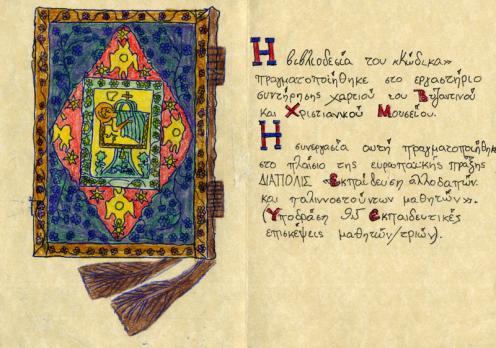 Η βιβλιοδεσία του «Κώδικα»
πραγματοποιήθηκε στο εργαστήριο
συντήρησης χαρτιού του Βυζαντινού
και Χριστιανικού Μουσείου.
Η συνεργασία αυτή πραγματοποιήθηκε
στο πλαίσιο της ευρωπαϊκής πράξης
ΔΙΑΠΟΛΙΣ «Εκπαίδευση αλλοδαπών
και παλιννοστούντων μαθητών».
(Υποδράση 95 Εκπαιδευτικές
επισκέψεις μαθητών/τριών).